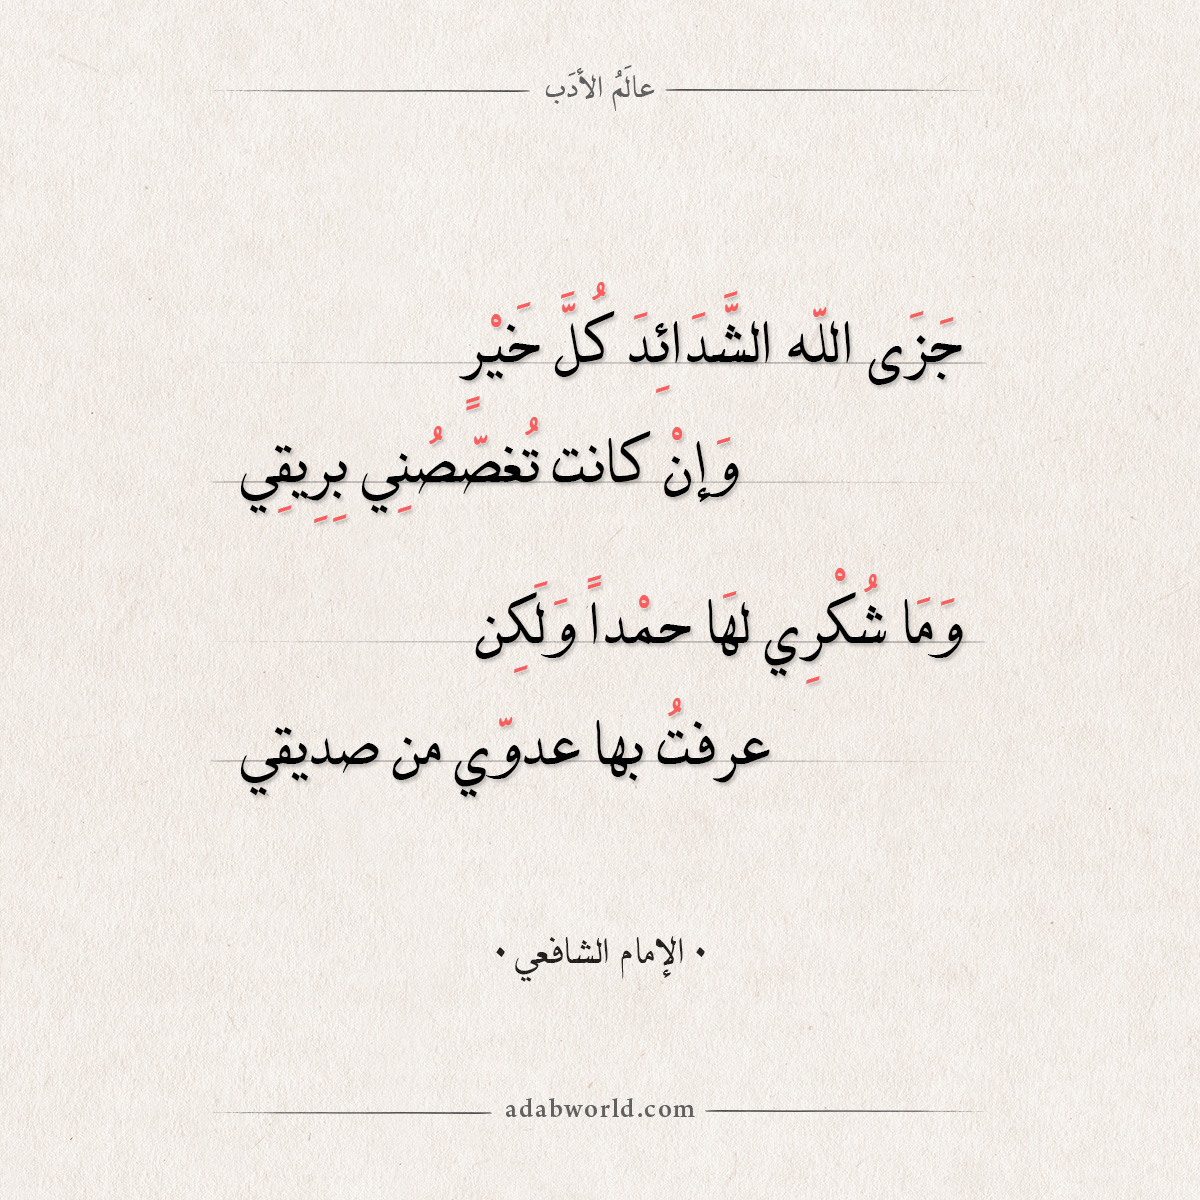 عالَمُ الأدَب
جَزَى اللّه الشَّدَائِدَ كُلَّ خَيْرٍ
وَإنْ كانت تُغصّصُنِي بِرِيقِي
وَمَا شُكْرِي لهَا حمْداً وَلَكِن
عرفتُ بها عدوّي من صديقي
• الإمام الشافعي •
adabworld.com